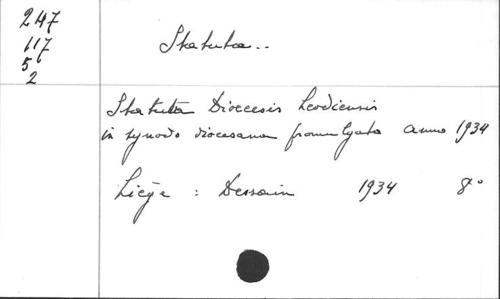 247
117
5
2
Statuta..
Statuta Dioecesis Leodiensis
in synodo diocesana promulgata anno 1934
Liège : Dessain 1934 8°